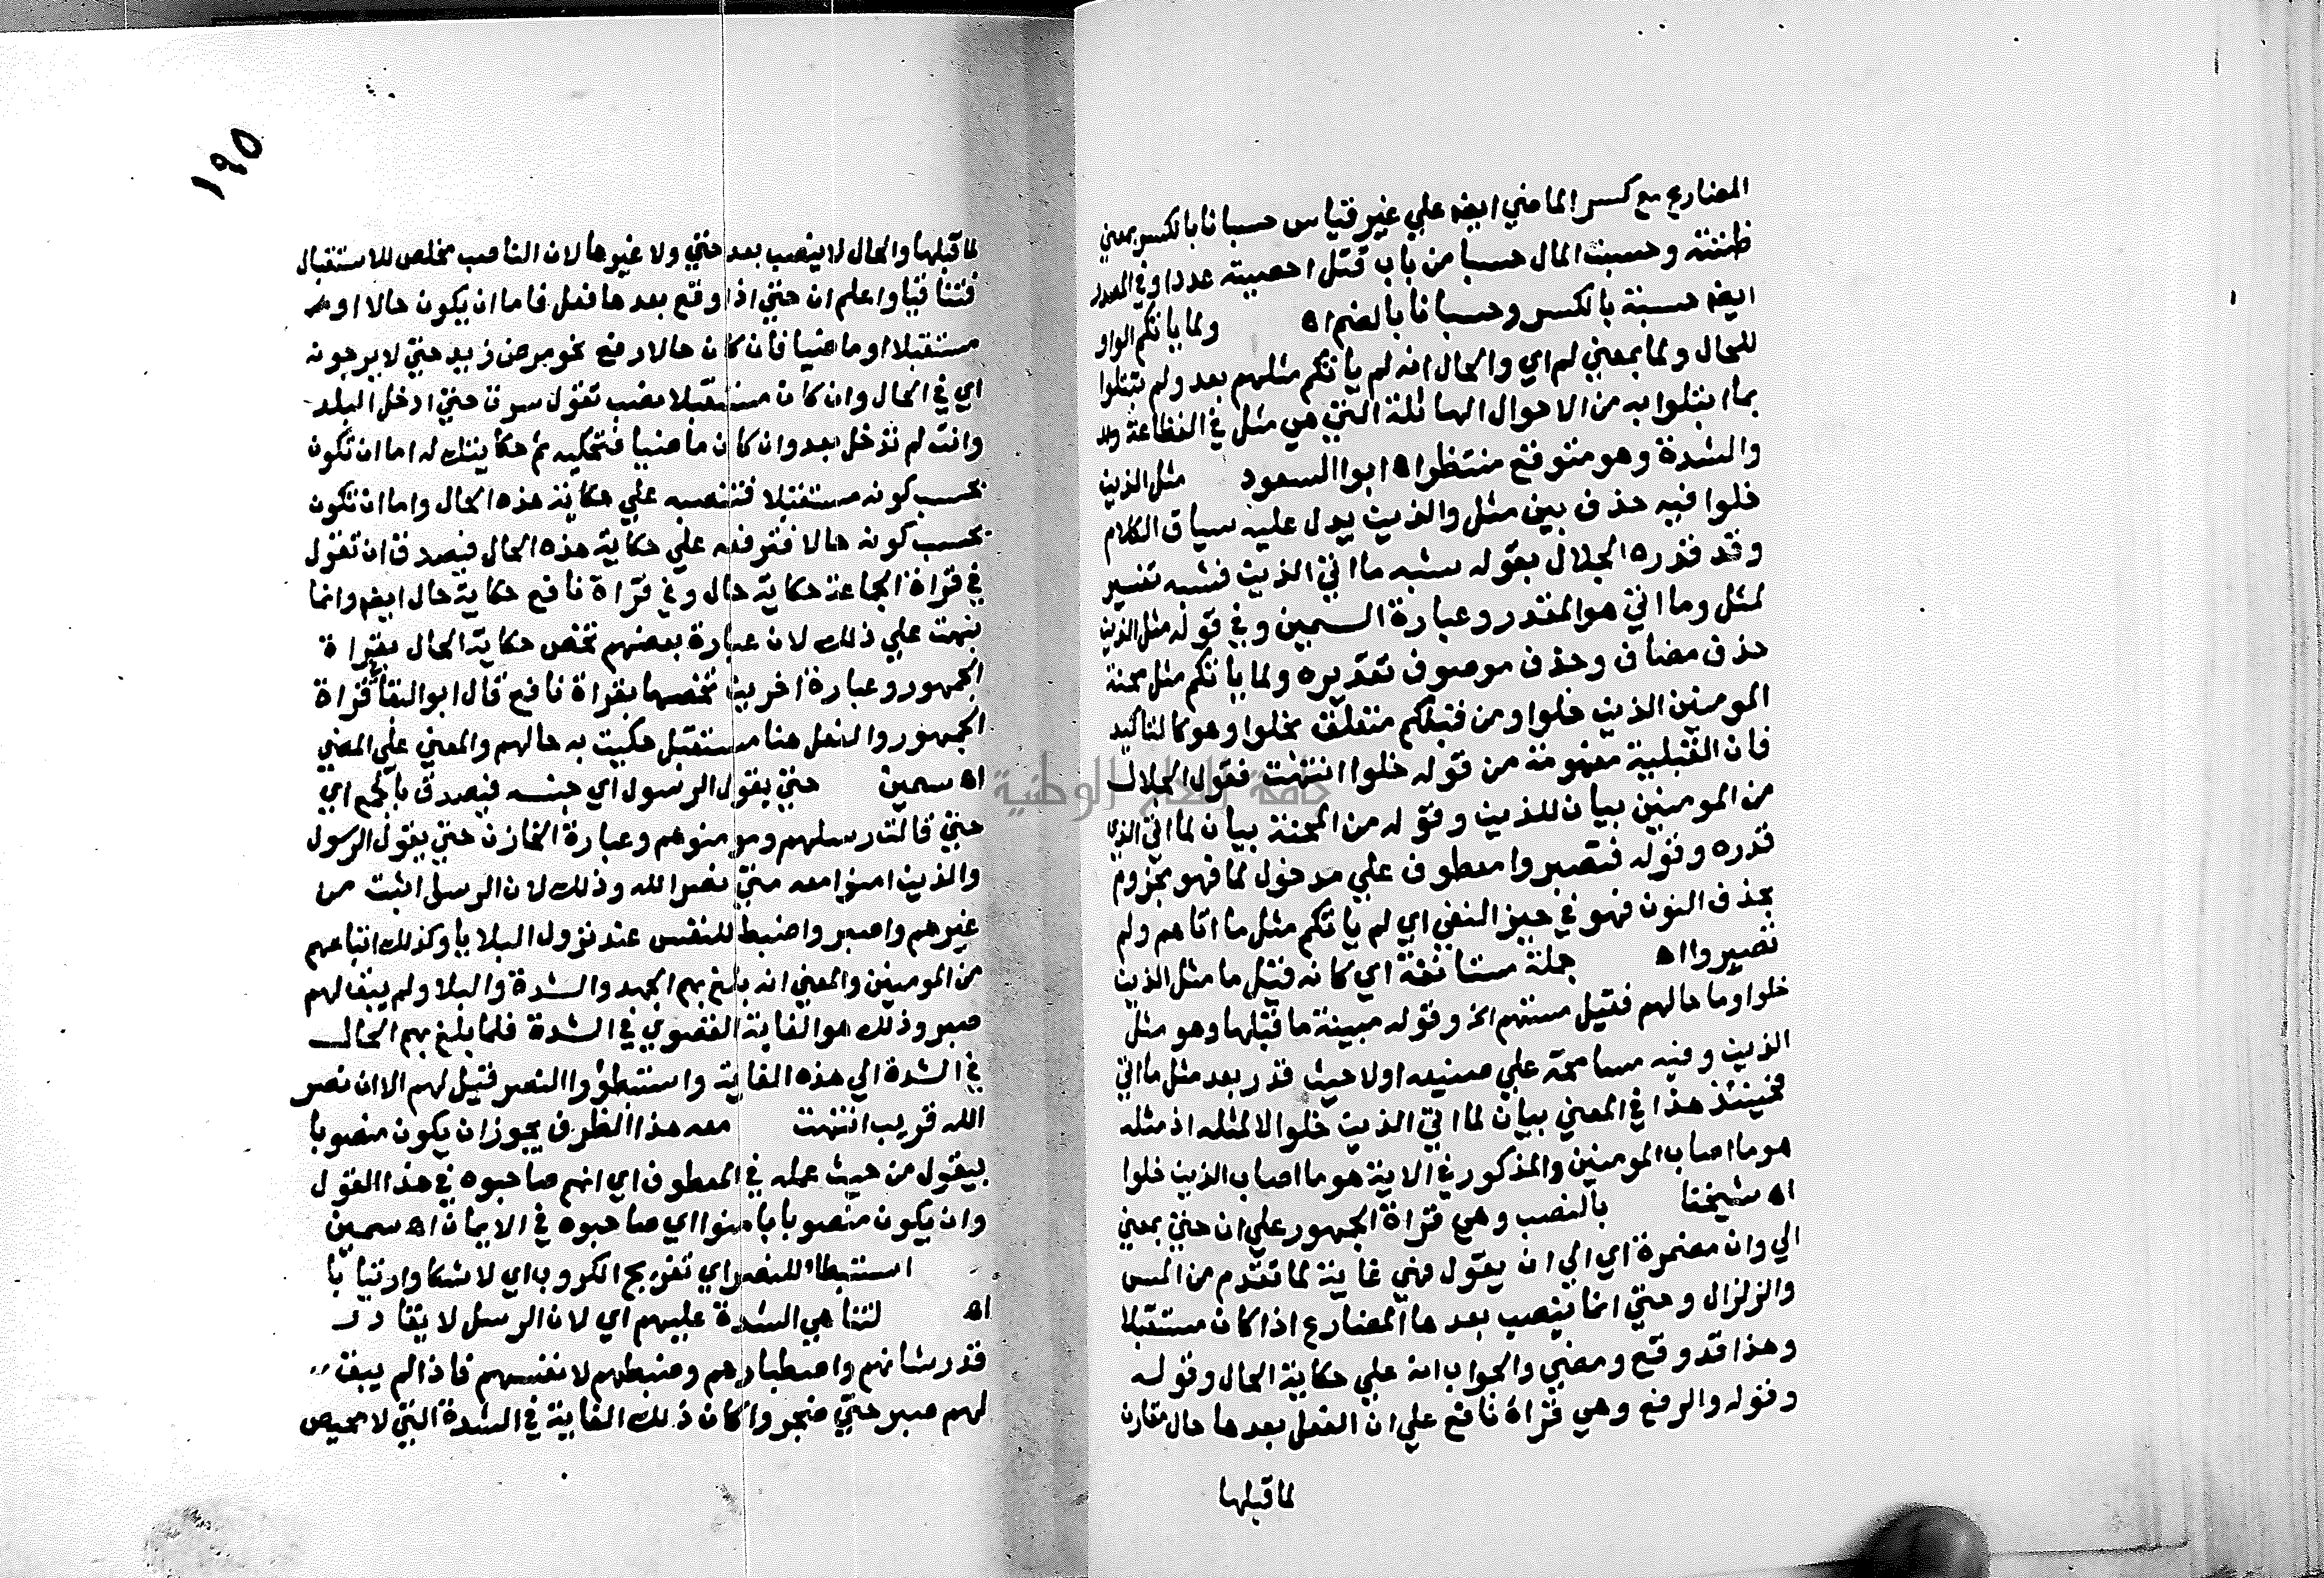 المضارع مع كسر الماضي ايضا علي غير قياس حسبانا بالكسر بمعني
ظننته وحسبت المال حسبا من باب قتل احصيته عددا وفي المصدر
ايضا حسبة بالكسر وحسبانا بالضم اه ولما ياتكم الواو
للحال ولما بمعني لم اي والحال انه لم ياتكم مثلهم بعد ولم تبتلوا
بما ابتلوا به من الاحوال الهائلة التي هي مثل في الفظاعة
والشدة وهو متوقع منتظر اه ابوا السعود مثل الذين
خلوا فيه حذف بين مثل والذين يدل عليه سياق الكلام
وقد قدره الجلال بقوله شبه ما اتي الذين فشبه تفسير
لمثل وما اتي هو المقدر وعبارة السمين وفي قوله مثل الذين
حذف مضاف وحذف موصوف تقديره ولما ياتكم مثل محنة
المومنين الذين خلوا ومن قبلكم متعلق بخلوا وهو كالتاكيد
فان القبلية مفهومة من قوله خلوا انتهت فقول الجلال
من المومنين بيان للذين وقوله من المحنة بيان لما اتي الذي
قدره وقوله فتصبروا معطوف علي مدخول لما فهو مجزوم
بحذف النون فهو في حيز النفي اي لم ياتكم مثل ما اتاهم ولم
تصبروا اه جملة مستانفة اي كانه قيل ما مثل الذين
خلوا وما حالهم فقيل مستهم الخ وقوله مبينة ما قبلها وهو مثل
الذين وفيه مسامحة علي صنيعه اولا حيث قدر بعد مثل ما اتي
فحينئذ هذا في المعني بيان لما اتي الذين خلوا لا لمثله اذ مثله
هو ما اصاب المومنين والمذكور في الاية هو ما اصاب الذين خلوا
اه شيخنا بالنصب وهي قراة الجمهور علي ان حتي بمعني
الي وان مضمرة اي الي ان يقول فهي غاية لما تقدم من المس
والزلزال وحتي انما ينصب بعدها المضارع اذا كان مستقبلا
وهذا قد وقع ومضي والجواب انه علي حكاية الحال وقوله
وقوله والرفع وهي قراة نافع علي ان الفعل بعدها حال مقارن
لما قبلها
١٩٥
لما قبلها والحال لا ينصب بعد حتي ولا غيرها لان الناصب مخلص للاستقبال
فتنافيا واعلم ان حتي اذا وقع بعدها فعل فاما ان يكون حالا او
مستقبلا او ماضيا فان كان حالا رفع نحو مرض زيد حتي لا يرجونه
اي في الحال وان كان مستقبلا نصب تقول سرت حتي ادخل البلد
وانت لم تدخل بعد وان كان ماضيا فتحكيه ثم حكايتك له اما ان تكون
بحسب كونه مستقبلا فتنصبه علي حكاية هذه الحال واما ان تكون
بحسب كونه حالا فترفعه علي حكاية هذه الحال فيصدق ان تقول
في قراة الجماعة حكاية حال وفي قراة نافع حكاية حال ايضا وانما
نبهت علي ذلك لان عبارة بعضهم تخص حكاية الحال بقراة
الجمهور وعبارة اخرين تخصها بقراة نافع قال ابو البقا قراة
الجمهور والفعل هنا مستقبل حكيت به حالهم والمعني علي المضي
اه سمين حتي يقول الرسول اي جنسه فيصدق بالجمع اي
حتي قالت رسلهم ومومنوهم وعبارة الخازن حتي يقول الرسول
والذين امنوا معه متي نصر الله وذلك لان الرسل اثبت من
غيرهم واصبر واضبط للنفس عند نزول البلايا وكذلك اتباعهم
من المومنين والمعني انه بلغ بهم الجهد والشدة والبلا ولم يبقا لهم
صبر وذلك هو الغاية القصوي في الشدة فلما بلغ بهم الحال
في الشدة الي هذه الغاية واستبطؤا النصر قيل لهم الا ان نصر
الله قريب انتهت معه هذا الظرف يجوز ان يكون منصوبا
بيقول من حيث عمله في المعطوف اي انهم صاحبوه في هذا القول
وان يكون منصوبا بامنوا اي صاحبوه في الايمان اه سمين
استبطا للنصر اي تفريج الكروب اي لا شكا وارتيابا
اه لتناهي الشدة عليهم اي لان الرسل لا يقادر
قدر شانهم واصطبارهم وضبطهم لانفسهم فاذا لم يبق
لهم صبر حتي ضجروا كان ذلك الغاية في الشدة التي لا محيص